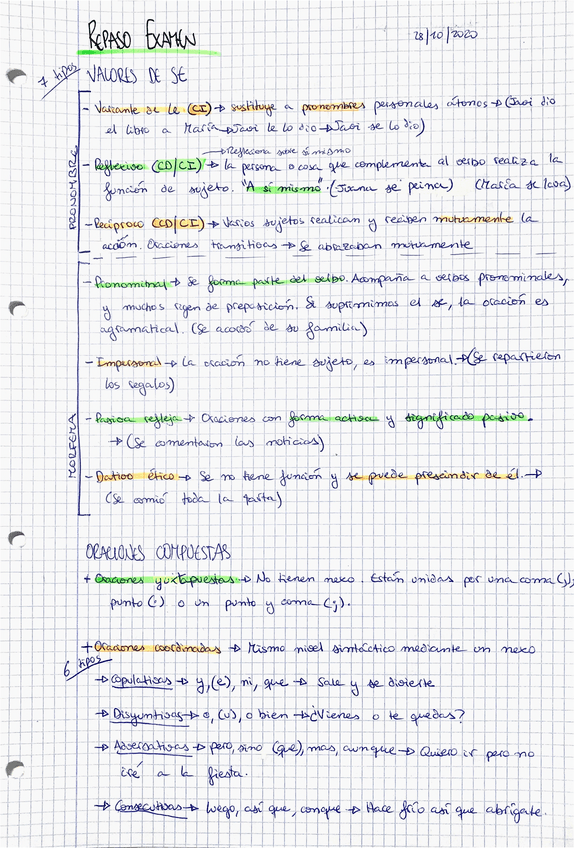 REPASO EXAMEN
28/10/2020
7 tipos
VALORES DE SE
PRONOMBRE
- Variante de le (CI) → sustituye a pronombres personales átonos → (Javi dio
el libro a María → Javi le lo dio → Javi se lo dio)
→ Reflexiona sobre sí mismo
- Reflexivo (CD/CI) → la persona o cosa que complementa al verbo realiza la
función de sujeto. "A sí mismo". (Juana se peina) (María se lava)
- Recíproco (CD/CI) → Varios sujetos realizan y reciben mutuamente la
acción. Oraciones transitivas → Se abrazaban mutuamente
MORFEMA
- Pronominal → Se forma parte del verbo. Acompaña a verbos pronominales,
y muchos rigen de preposición. Si suprimimos el se, la oración es
agramatical. (Se acordó de su familia)
- Impersonal → La oración no tiene sujeto, es impersonal. → (Se repartieron
los regalos)
- Pasiva refleja → Oraciones con forma activa y significado pasivo.
→ (Se comentaron las noticias)
- Dativo ético → Se no tiene función y se puede prescindir de él. →
(Se comió toda la tarta)
ORACIONES COMPUESTAS
+ Oraciones yuxtapuestas → No tienen nexo. Están unidas por una coma (,),
punto (:) o un punto y coma (;).
+ Oraciones coordinadas → Mismo nivel sintáctico mediante un nexo
6 tipos
→ copulativas → y, (e), ni, que → Sale y se divierte
→ Disyuntivas → o, (u), o bien → ¿Vienes o te quedas?
→ Adversativas → pero, sino (que), mas, aunque → Quiero ir pero no
iré a la fiesta.
→ Consecutivas → luego, así que, conque → Hace frío así que abrígate.